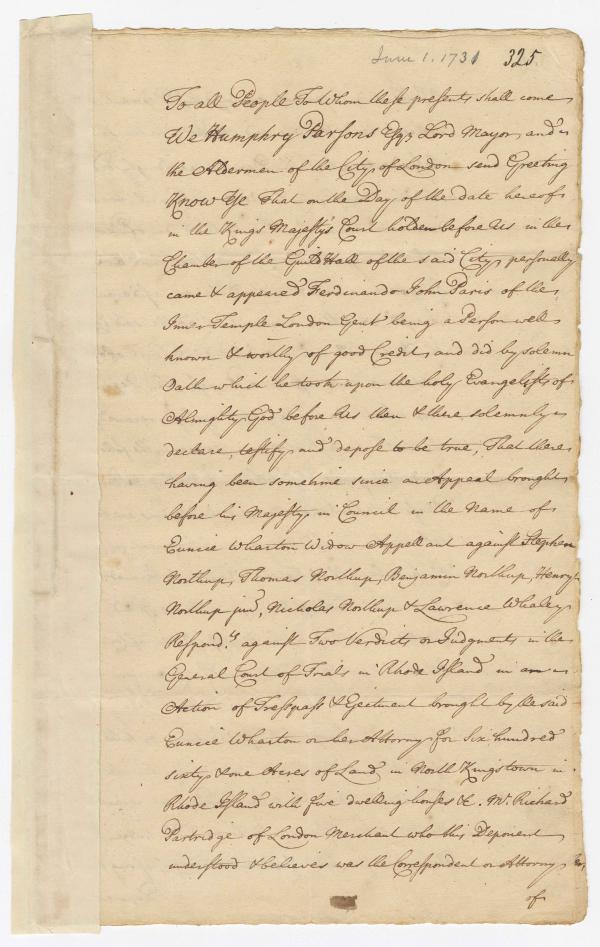 June 1. 1731 325.
To all People To Whom these presents shall come
We Humphry Parsons Esqr Lord Mayor and
the Aldermen of the City of London send Greeting
Know Ye That on the Day of the date hereof
in the Kings Majestys Court holden before Us in the
Chamber of the Guild Hall of the said City personally
came & appeared Ferdinando John Paris of the
Inner Temple London Gent being a Person well
known & worthy of good Credit and did by solemn
Oath which he took upon the holy Evangelists of
Almighty God before Us then & there solemnly
declare, testify and depose to be true, That there
having been sometime since an Appeal brought
before his Majesty in Council in the Name of
Eunice Wharton Widow Appellant against Stephen
Northup, Thomas Northup, Benjamin Northup, Henry
Northup junr, Nicholas Northup & Lawrence Whaley
Respondts against Two Verdicts or Judgments in the
General Court of Trials in Rhode Island in an
Action of Trespass & Ejectment brought by the said
Eunice Wharton or her Attorny for Six hundred
sixty & one Acres of Land in North Kingstown in
Rhode Island with five dwelling houses &c. Mr. Richard
Partridge of London Merchant who this Deponent
understood & believes was the Correspondent or Attorny
of